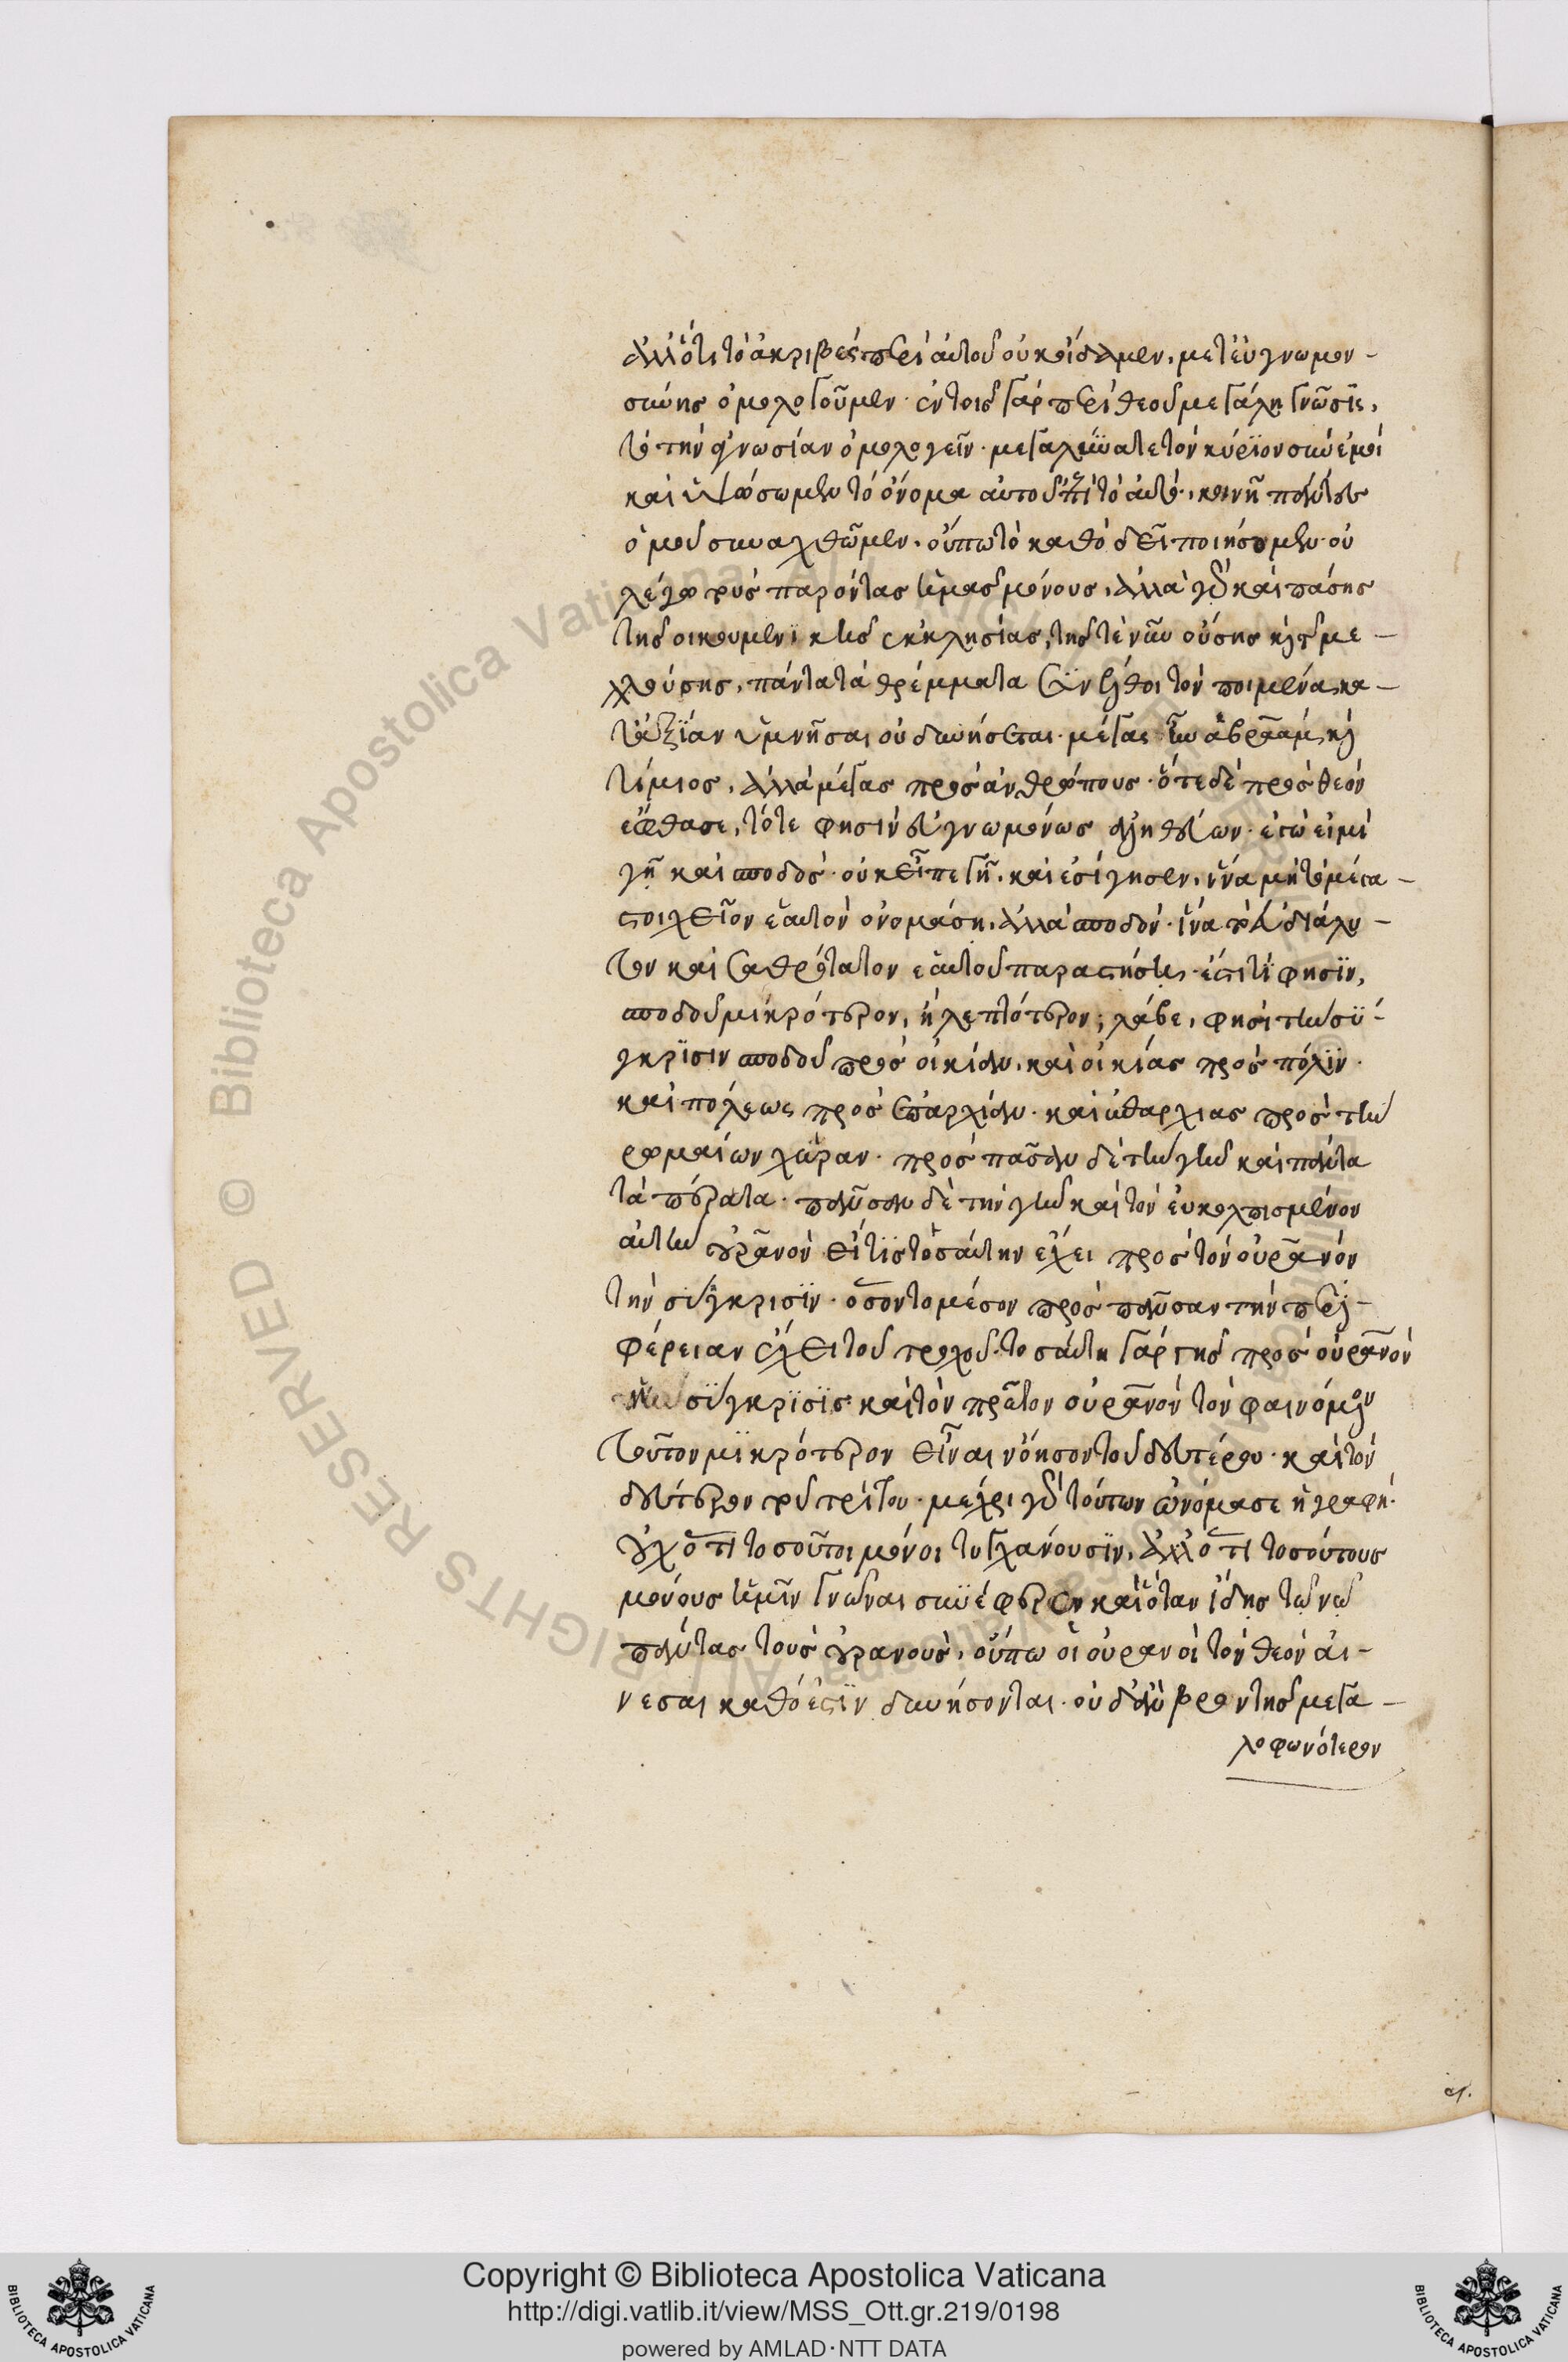 ἀλλ' ὅτι τὸ ἀκριβὲς περὶ αὐτοῦ οὐκ οἴδαμεν, μετ' εὐγνωμον-
σύνης ὁμολογοῦμεν· ἐν τοῖς γὰρ περὶ θεοῦ μεγάλη γνῶσις,
τὸ τὴν ἀγνωσίαν ὁμολογεῖν· μεγαλύνατε τὸν κύριον σὺν ἐμοὶ
καὶ ὑψώσωμεν τὸ ὄνομα αὐτοῦ ἐπὶ τὸ αὐτό, κοινῇ πάντες
ὁμοῦ συναχθῶμεν· οὔπω τὸ καθὸ δεῖ ποιήσομεν· οὐ
λέγω τοὺς παρόντας ὑμᾶς μόνους, ἀλλὰ γὰρ καὶ πάσης
τῆς οἰκουμενικῆς ἐκκλησίας, τῆς τε νῦν οὔσης καὶ τῆς με-
λλούσης, πάντα τὰ θρέμματα συνέλθοι τὸν ποιμένα, κα-
τ' ἀξίαν ὑμνῆσαι οὐ δυνήσεται· μέγας ἦν ἀβραὰμ καὶ
τίμιος, ἀλλὰ μέγας πρὸς ἀνθρώπους· ὅτε δὲ πρὸς θεὸν
ἔφθασε, τότε φησὶν εὐγνωμόνως ἀληθεύων· ἐγώ εἰμι
γῆ καὶ σποδός· οὐκ εἶπε γῆ, καὶ ἐσίγησεν, ἵνα μὴ τὸ μέγα
στοιχεῖον ἑαυτὸν ὀνομάσῃ, ἀλλὰ σποδόν· ἵνα τὸ εὐδιάλυ-
τον καὶ σαθρότατον ἑαυτοῦ παραστήσῃ· ἔστι τί φησὶν,
σποδοῦ μικρότερον, ἢ λεπτότερον; λάβε, φησὶ τὴν σύ-
γκρισιν σποδοῦ πρὸς οἰκίαν, καὶ οἰκίας πρὸς πόλιν·
καὶ πόλεως πρὸς ἐπαρχίαν· καὶ ἐπαρχίας πρὸς τὴν
ρωμαίων χώραν· πρὸς πᾶσαν δὲ τὴν γῆν καὶ πάντα
τὰ πέρατα· πᾶσαν δὲ τὴν γῆν καὶ τὸν ἐγκολπισμένον
αὐτὴν οὐρανὸν εἴ τις τοσαύτην ἔχει πρὸς τὸν οὐρανὸν
τὴν σύγκρισιν· ὅσον τὸ μέσον πρὸς πᾶσαν τὴν περι-
φέρειαν ἔχει τοῦ τροχοῦ· τοσαύτη γὰρ γῆς πρὸς οὐρανὸν
σύγκρισις καὶ τὸν πρῶτον οὐρανὸν τὸν φαινόμενον
τοῦτον μικρότερον εἶναι νόησον τοῦ δευτέρου· καὶ τὸν
δεύτερον τοῦ τρίτου· μέχρι γὰρ τούτων ὠνόμασε ἡ γραφή·
οὐχ ὅτι τοσοῦτοι μόνοι τυγχάνουσιν, ἀλλ' ὅτι τοσούτους
μόνους ἡμῖν γνῶναι συνέφερεν καὶ ὅταν ἴδῃς τῷ νῷ
πάντας τοὺς οὐρανοὺς, οὔπω οἱ οὐρανοὶ τὸν θεὸν αἰ-
νέσαι καθό ἐστιν δυνήσονται· οὐδ' ἂν βροντῆς μεγα-
λοφωνότερον
Copyright © Biblioteca Apostolica Vaticana
http://digi.vatlib.it/view/MSS_Ott.gr.219/0198
powered by AMLAD·NTT DATA